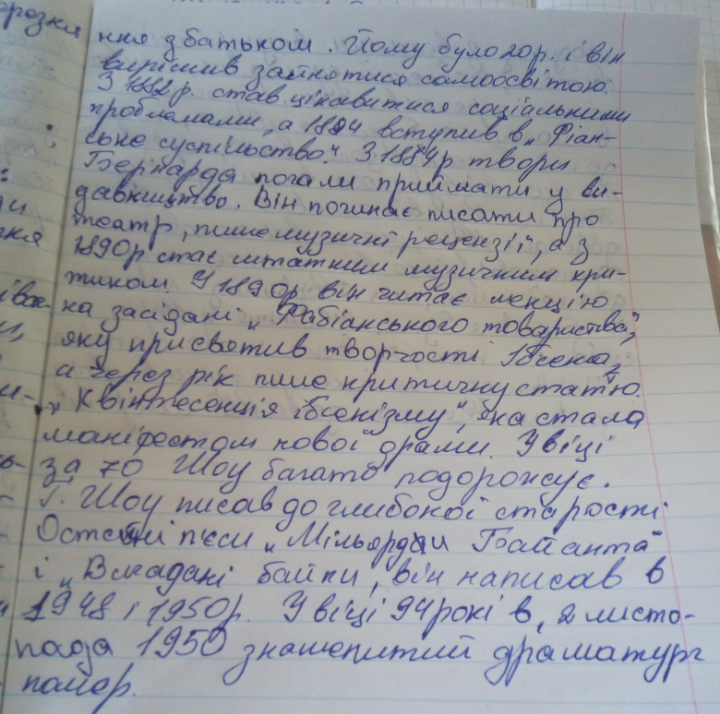 ння з батьком. Йому було 20р. і він
вирішив зайнятися самоосвітою.
З 1882р. став цікавитися соціальними
проблемами, а 1884 вступив в „Фіан-
ське суспільство." З 1884р твори
Бернарда почали приймати у ви-
давництво. Він починає писати про
театр, пише музичні рецензії, а з
1890р стає штатним музичним кри-
тиком. У 1890р він читає лекцію
на засідані „Фабіанського товариства",
яку присвятив творчості Ібсена,
а через рік пише критичну статтю
„Квінтесенція ібсенізму", яка стала
маніфестом нової драми. У віці
за 70 Шоу багато подорожує.
Г. Шоу писав до глибокої старості.
Остані п'єси „Мільярди Байанта"
і „Вигадані байки", він написав в
1948 і 1950р. У віці 94 років, 2 листо-
пада 1950 знаменитий драматург
помер.